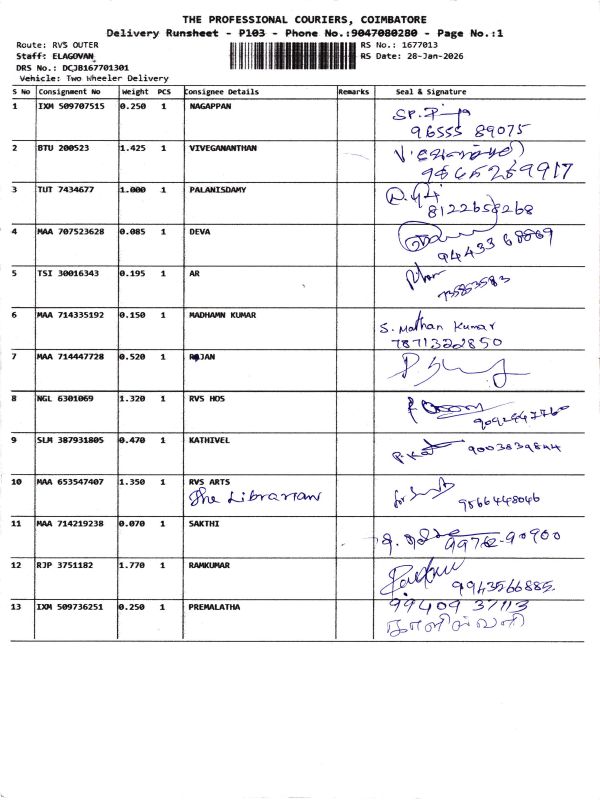 THE PROFESSIONAL COURIERS, COIMBATORE
Delivery Runsheet - P103 - Phone No.:9047080280 - Page No.:1
Route: RVS OUTER RS No.: 1677013
Staff: ELAGOVAN RS Date: 28-Jan-2026
DRS No.: DCJB167701301
Vehicle: Two Wheeler Delivery
S No Consignment No Weight PCS Consignee Details Remarks Seal & Signature
1 IXM 509707515 0.250 1 NAGAPPAN
96555 89075
2 BTU 200523 1.425 1 VIVEGANANTHAN
3 TUT 7434677 1.000 1 PALANISDAMY
8122658268
4 MAA 707523628 0.085 1 DEVA
94433 68869
5 TSI 30016343 0.195 1 AR
6 MAA 714335192 0.150 1 MADHAMN KUMAR
S. Mathan Kumar
7871322850
7 MAA 714447728 0.520 1 RAJAN
8 NGL 6301069 1.320 1 RVS HOS
9092447760
9 SLM 387931805 0.470 1 KATHIVEL
9003839844
10 MAA 653547407 1.350 1 RVS ARTS
The Librarian
9566448046
11 MAA 714219238 0.070 1 SAKTHI
99762-90900
12 RJP 3751182 1.770 1 RAMKUMAR
9943566885
13 IXM 509736251 0.250 1 PREMALATHA
99409 37113